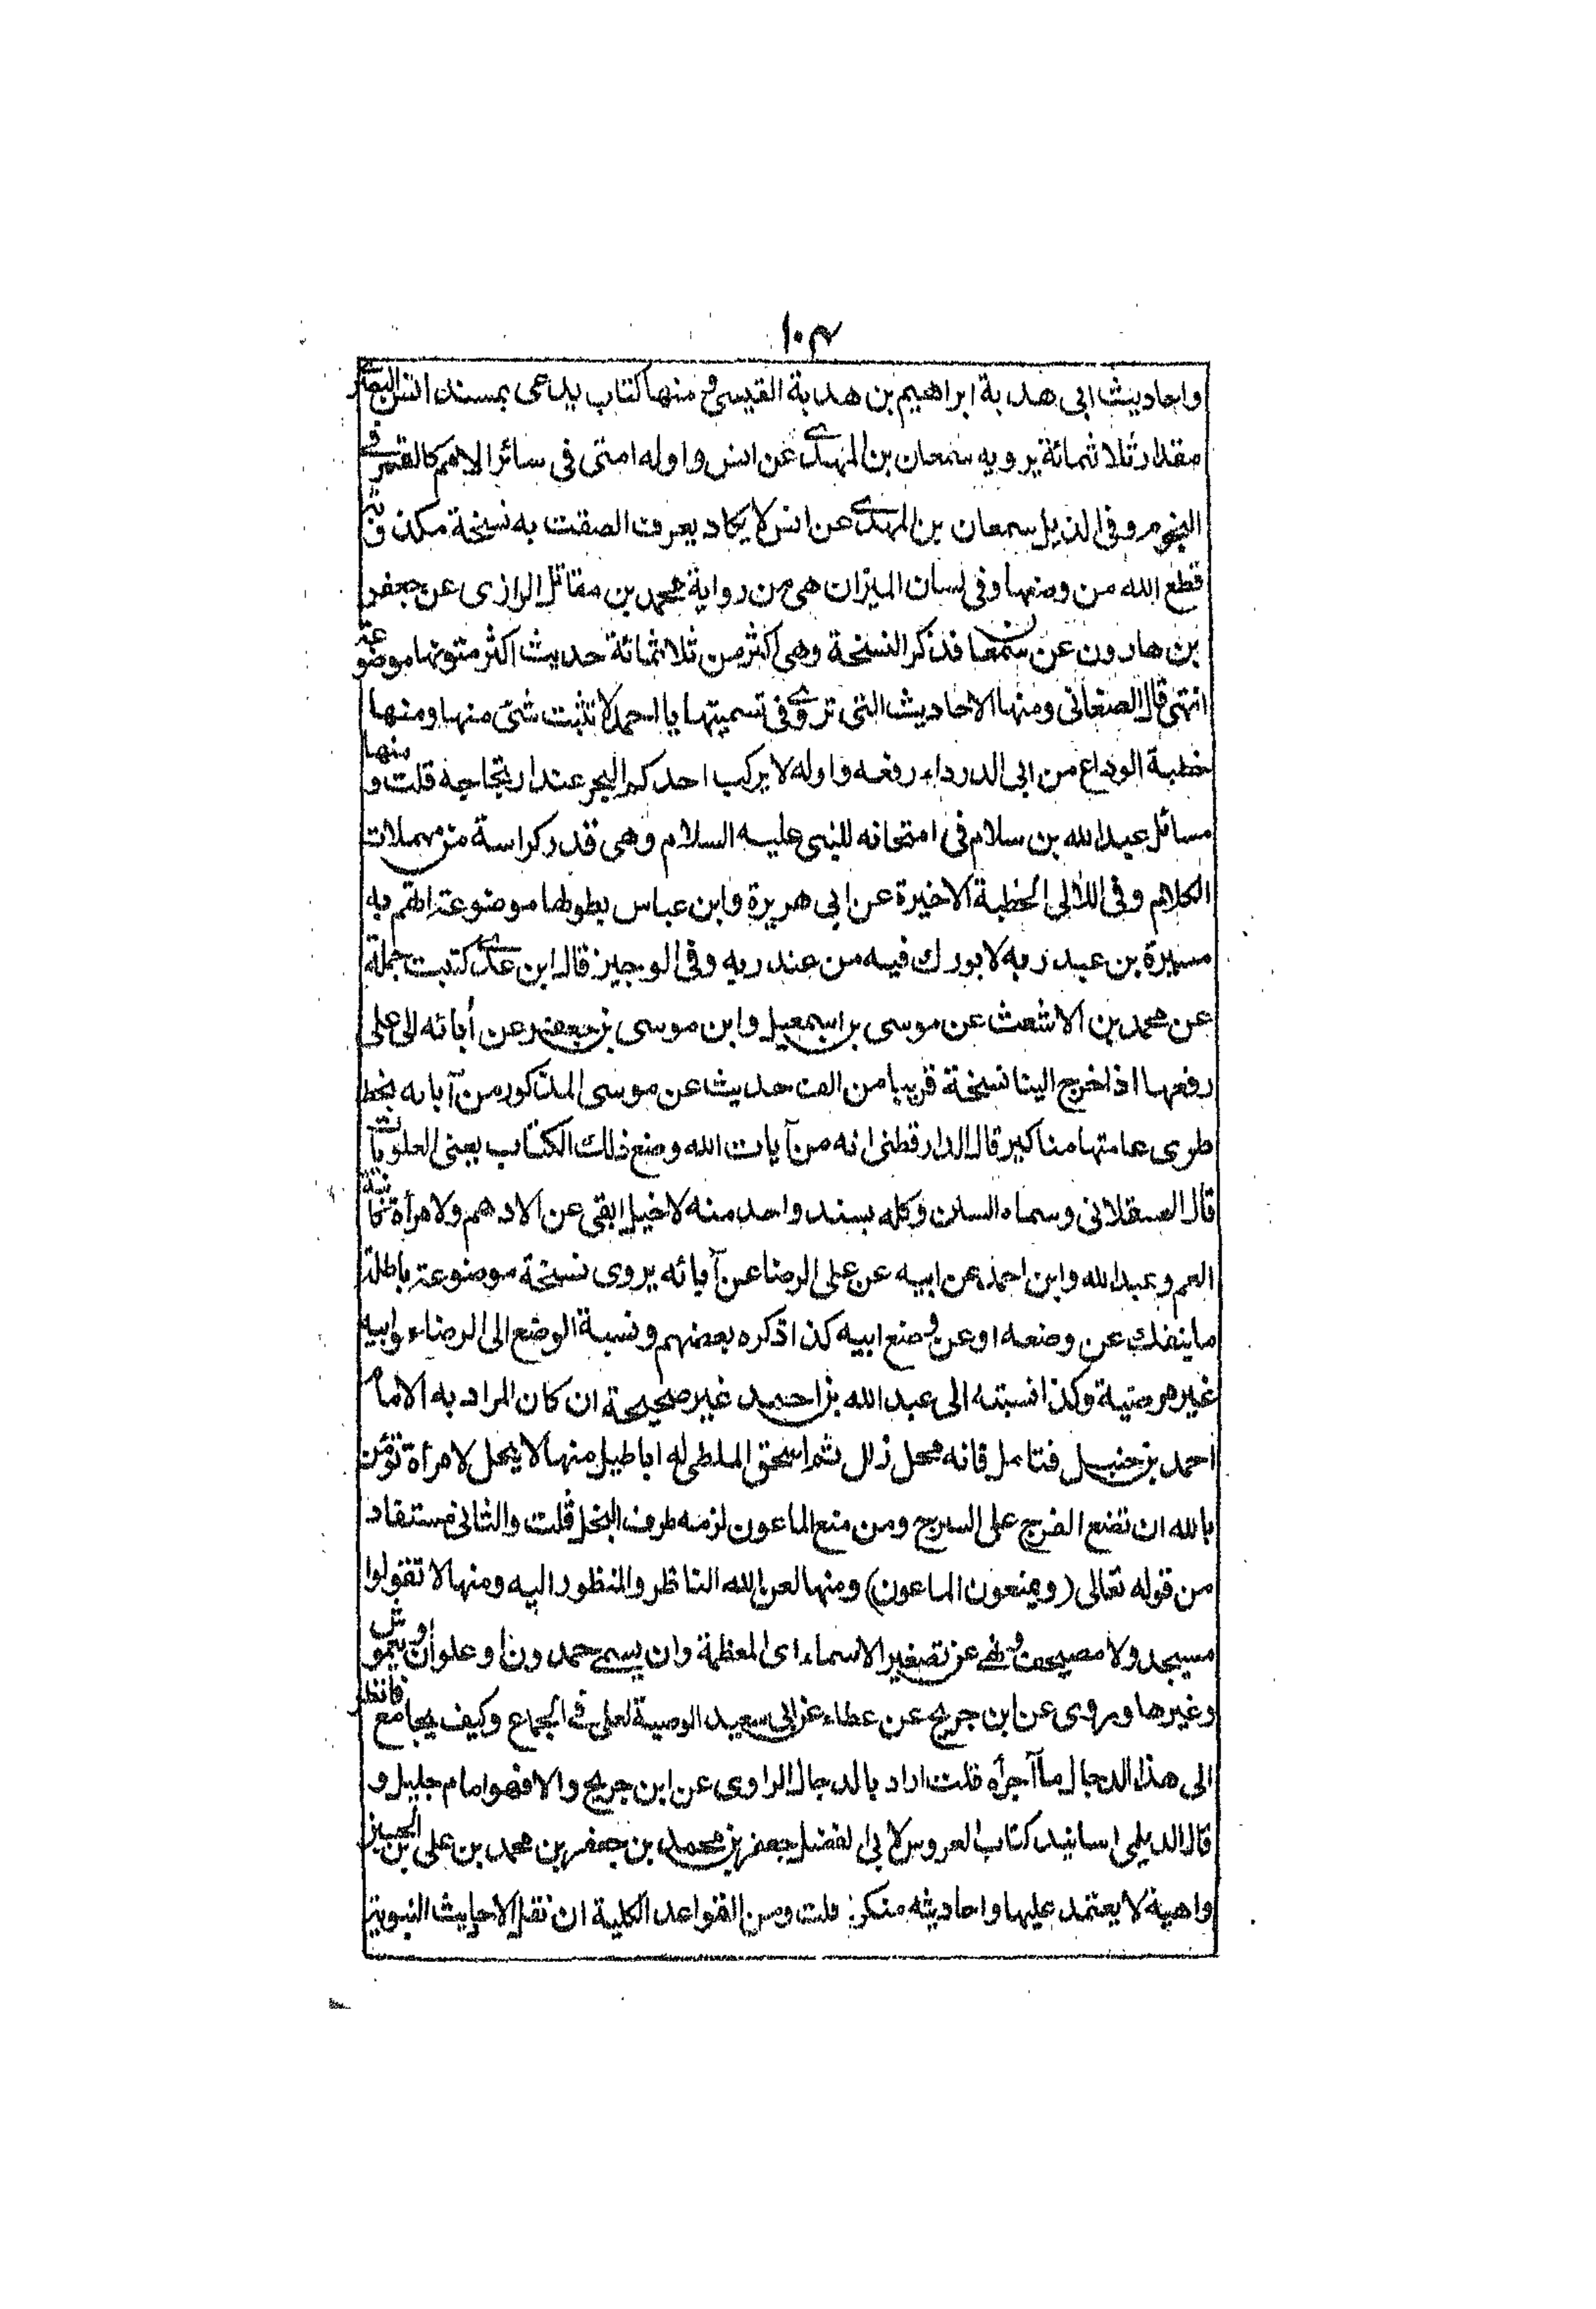 ١٠٤
واحاديث ابى هدبة ابراهيم بن هدبة القيسى و منها كتاب يدعى بمسند انس البصرى
مقدار ثلاثمائة يرويه سمعان بن المهدى عن انس واوله امتى فى سائر الامم كالقمر فى
النجوم وفى الذيل سمعان بن المهدى عن انس لا يكاد يعرف الصقت به نسخة مكذوبة
قطع الله من وضعها وفى لسان الميزان هى من رواية محمد بن مقاتل الرازى عن جعفر
بن هارون عن سمعان فذكر النسخة وهى اكثر من ثلاثمائة حديث اكثر متونها موضوعة
انتهى قال الصغانى ومنها الاحاديث التى تروى فى تسميتها يا احمد لا تثبت شئ منها ومنها
خطبة الوداع من ابى الدرداء رفعه واوله لا يركب احدكم البحر عند ارتجاجه قلت ومنها
مسائل عبد الله بن سلام فى امتحانه للنبى عليه السلام وهى قدر كراسة من مهملات
الكلام وفى اللالى الخطبة الاخيرة عن ابى هريرة وابن عباس بطولها موضوعة اتهم به
مسيرة بن عبد ربه لا بورك فيه من عند ربه وفى الوجيز قال ابن عدى كتبت جملة
عن محمد بن الاشعث عن موسى بن اسمعيل وابن موسى بن جعفر عن أبائه الى على
رفعها اذ اخرج الينا نسخة قريبا من الف حديث عن موسى المذكور من آبايه بخط
طرى عامتها مناكير قال الدارقطنى انه من آيات الله وضع ذلك الكتاب يعنى العلويات
قال العسقلانى وسماه السنن وكله بسند واحد منه لا خيل ابقى عن الادهم ولا مرأة كابنة
العم وعبد الله وابن احمد عن ابيه عن على الرضا عن آبائه يروى نسخة موضوعة باطلة
ماينفك عن وضعه او عن وضع ابيه كذا ذكره بعضهم ونسبة الوضع الى الرضاء وابيه
غير مرضية وكذا نسبته الى عبد الله بن احمد غير صحيحة ان كان المراد به الامام
احمد بن حنبل فتامل فانه محل زلل ثم اسحق الملطى له اباطيل منها لا يحل لامرأة تؤمن
بالله ان تضع الفرج على السرج ومن منع الماعون لزمه طرف البخل قلت والثانى مستفاد
من قوله تعالى (ويمنعون الماعون) ومنها لعن الله الناظر والمنظور اليه ومنها لا تقولوا
مسيجد ولا مصيحف ونهى عن تصغير الاسماء اى المعظمة وان يسمى حمدون او علوان او يموش
وغيرها وروى عن ابن جريج عن عطاء عن ابى سعيد الوصية لعلى فى الجماع وكيف يجامع فانظر
الى هذا الدجال ما آجرأه قلت اراد بالدجال الراوى عن ابن جريج والا فهو امام جليل و
قال الديلمى اسانيد كتاب العروس لابى الفضل جعفر بن محمد بن جعفر بن محمد بن على بن الحسين
واهية لا يعتمد عليها واحاديثه منكرة قلت ومن القواعد الكلية ان نقل الاحاديث النبوية